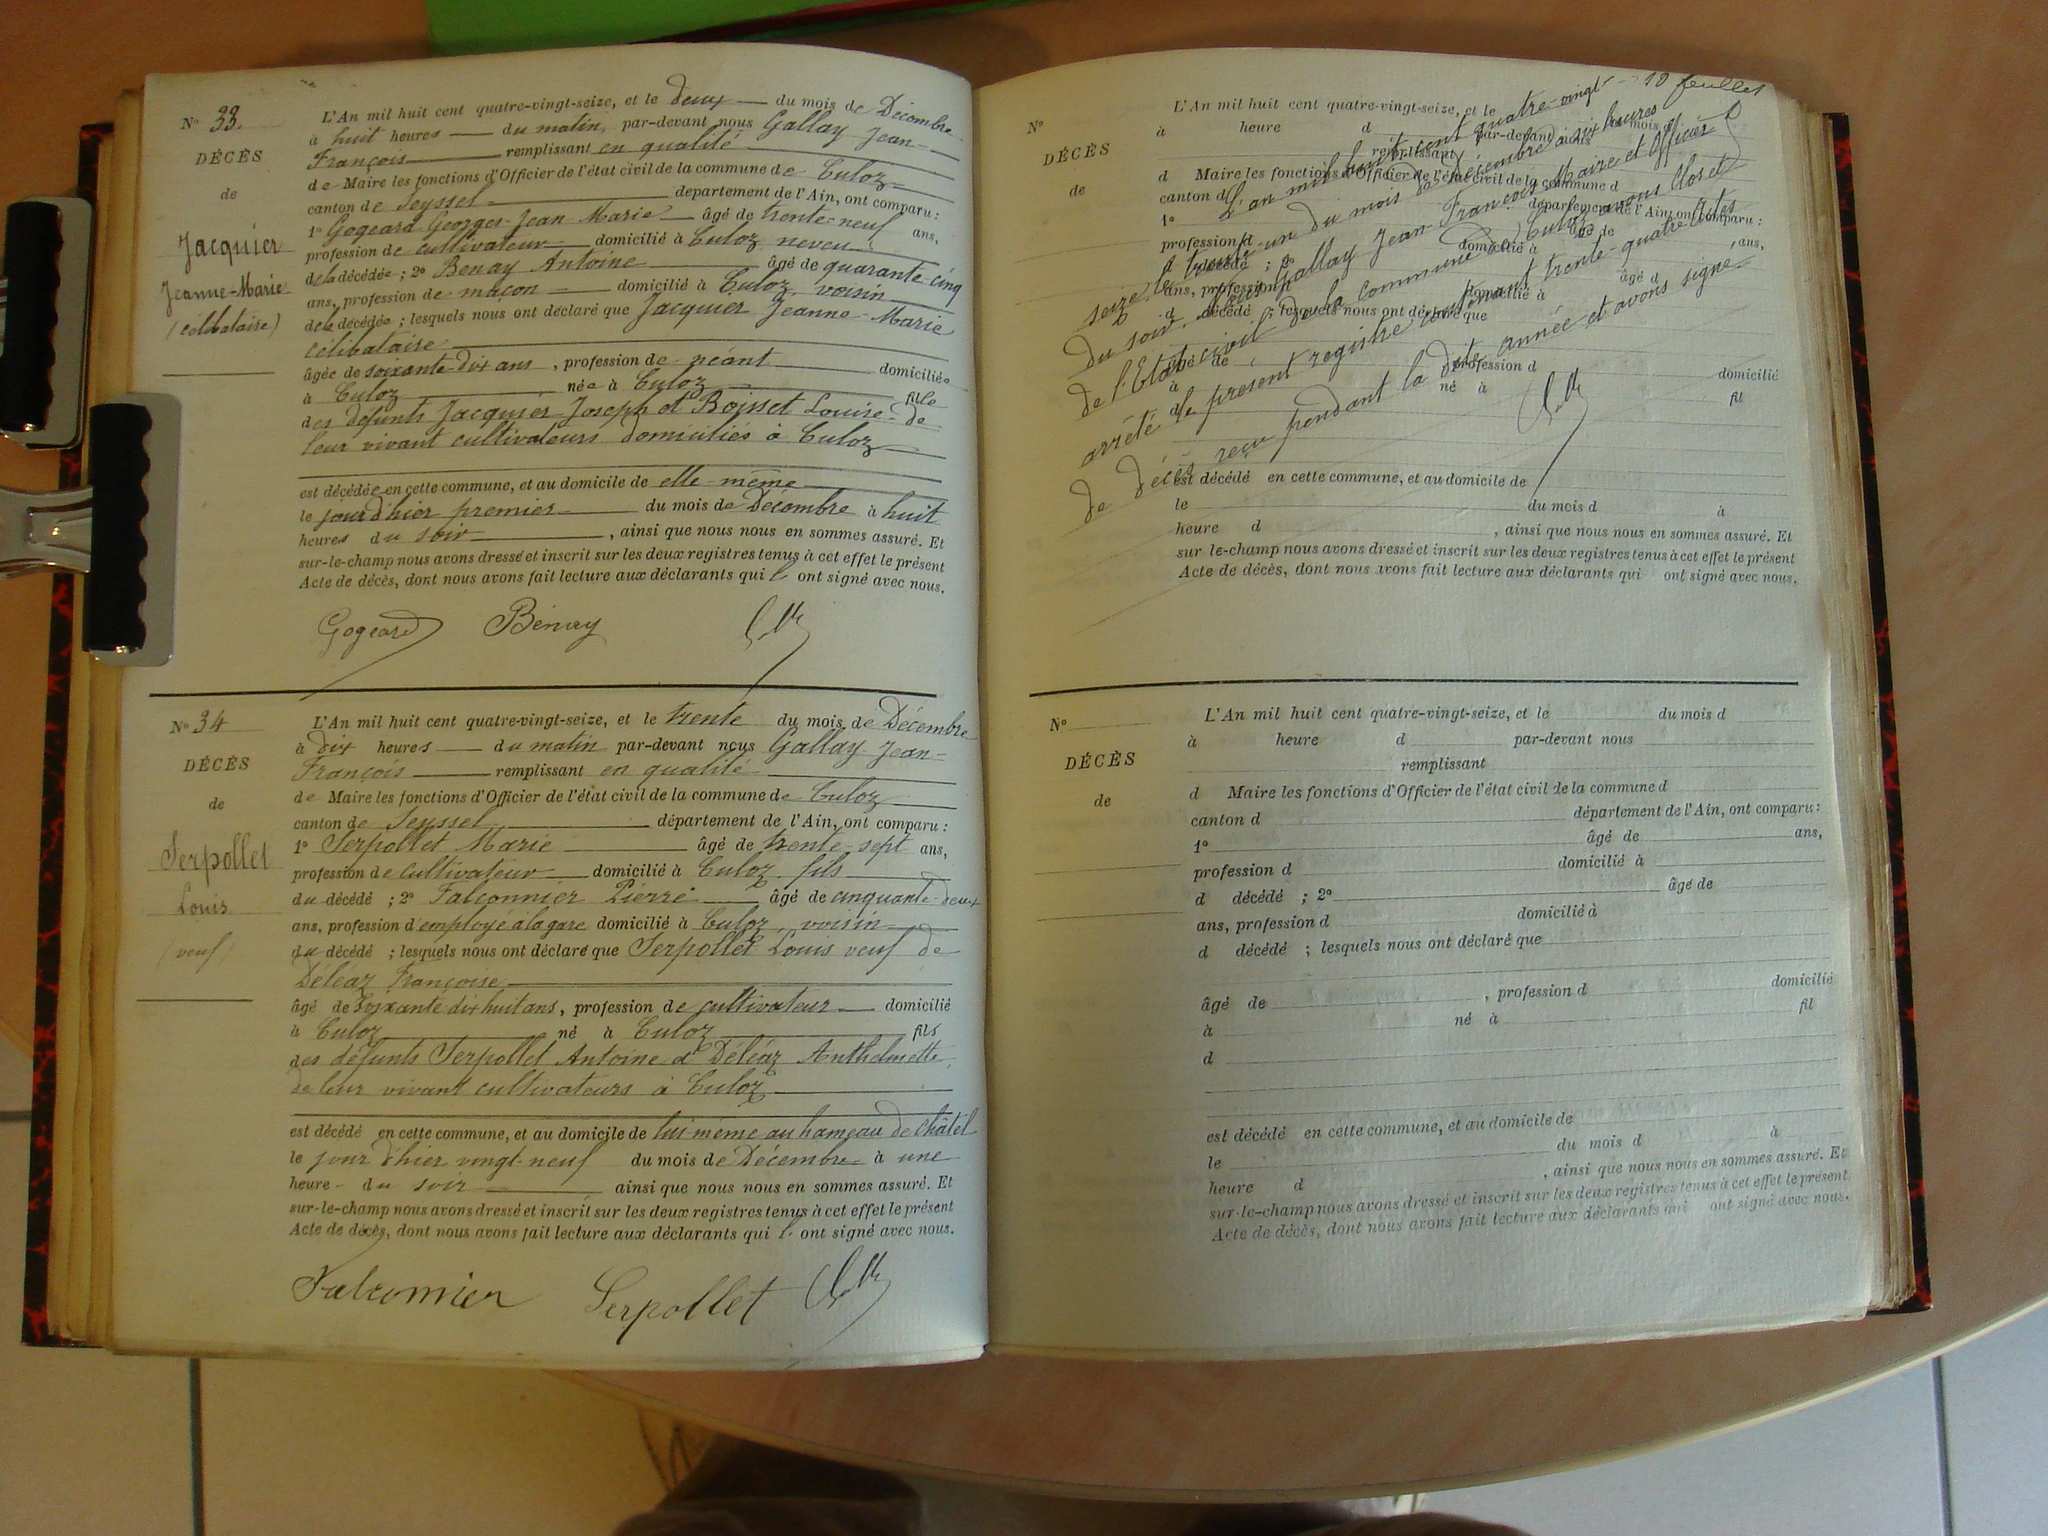 N° 33.
DÉCÈS
de
Jacquier
Jeanne-Marie
(célibataire)
L'An mil huit cent quatre-vingt-seize, et le deux du mois de Décembre
à huit heures du matin, par-devant nous Gallay Jean-
François remplissant en qualité
de Maire les fonctions d'Officier de l'état civil de la commune de Culoz
canton de Seyssel département de l'Ain, ont comparu :
1° Gogeard Georges-Jean Marie âgé de trente-neuf ans,
profession de cultivateur domicilié à Culoz neveu
de la décédée ; 2° Benay Antoine âgé de quarante cinq
ans, profession de maçon domicilié à Culoz, voisin
de la décédée ; lesquels nous ont déclaré que Jacquier Jeanne-Marie
célibataire
âgée de soixante-dix ans, profession de néant domiciliée
à Culoz née à Culoz fille
des défunts Jacquier Joseph et Boisset Louise de
leur vivant cultivateurs domiciliés à Culoz
est décédée en cette commune, et au domicile de elle-même
le jour d'hier premier du mois de Décembre à huit
heures du soir, ainsi que nous nous en sommes assuré. Et
sur-le-champ nous avons dressé et inscrit sur les deux registres tenus à cet effet le présent
Acte de décès, dont nous avons fait lecture aux déclarants qui l' ont signé avec nous.
Gogeard Bénay
N° 34
DÉCÈS
de
Serpollet
Louis
(veuf)
L'An mil huit cent quatre-vingt-seize, et le trente du mois de Décembre
à dix heures du matin par-devant nous Gallay Jean-
François remplissant en qualité
de Maire les fonctions d'Officier de l'état civil de la commune de Culoz
canton de Seyssel département de l'Ain, ont comparu :
1° Serpollet Marie âgé de trente-sept ans,
profession de cultivateur domicilié à Culoz fils
du décédé ; 2° Falconnier Pierre âgé de cinquante-deux
ans, profession d'employé à la gare domicilié à Culoz, voisin
du décédé ; lesquels nous ont déclaré que Serpollet Louis veuf de
Déléaz Françoise
âgé de soixante dix huit ans, profession de cultivateur domicilié
à Culoz né à Culoz fils
des défunts Serpollet Antoine et Déléaz Anthelmette
de leur vivant cultivateurs à Culoz
est décédé en cette commune, et au domicile de lui même au hameau de Châtel
le jour d'hier vingt-neuf du mois de Décembre à une
heure du soir ainsi que nous nous en sommes assuré. Et
sur-le-champ nous avons dressé et inscrit sur les deux registres tenus à cet effet le présent
Acte de décès, dont nous avons fait lecture aux déclarants qui l' ont signé avec nous.
Falconnier Serpollet
10 feuillet
L'an mil huit cent quatre-vingt-
seize, le trente-un du mois de Décembre à six heures
du soir, nous Gallay Jean-François Maire et Officier
de l'Etat civil de la commune de Culoz avons clos et
arrêté le présent registre contenant trente-quatre actes
de décès reçu pendant la dite année et avons signé
N°
DÉCÈS
de
L'An mil huit cent quatre-vingt-seize, et le du mois d
à heure d par-devant nous
remplissant
d Maire les fonctions d'Officier de l'état civil de la commune d
canton d département de l'Ain, ont comparu :
1° âgé de ans,
profession d domicilié à
d décédé ; 2° âgé d
ans, profession d domicilié à
d décédé ; lesquels nous ont déclaré que
âgé de , profession d domicilié
à né à fil
d
est décédé en cette commune, et au domicile de
le du mois d à
heure d , ainsi que nous nous en sommes assuré. Et
sur-le-champ nous avons dressé et inscrit sur les deux registres tenus à cet effet le présent
Acte de décès, dont nous avons fait lecture aux déclarants qui ont signé avec nous.
N°
DÉCÈS
de
L'An mil huit cent quatre-vingt-seize, et le du mois d
à heure d par-devant nous
remplissant
d Maire les fonctions d'Officier de l'état civil de la commune d
canton d département de l'Ain, ont comparu :
1° âgé de ans,
profession d domicilié à
d décédé ; 2° âgé de
ans, profession d domicilié à
d décédé ; lesquels nous ont déclaré que
âgé de , profession d domicilié
à né à fil
d
est décédé en cette commune, et au domicile de
le du mois d à
heure d , ainsi que nous nous en sommes assuré. Et
sur-le-champ nous avons dressé et inscrit sur les deux registres tenus à cet effet le présent
Acte de décès, dont nous avons fait lecture aux déclarants qui ont signé avec nous.